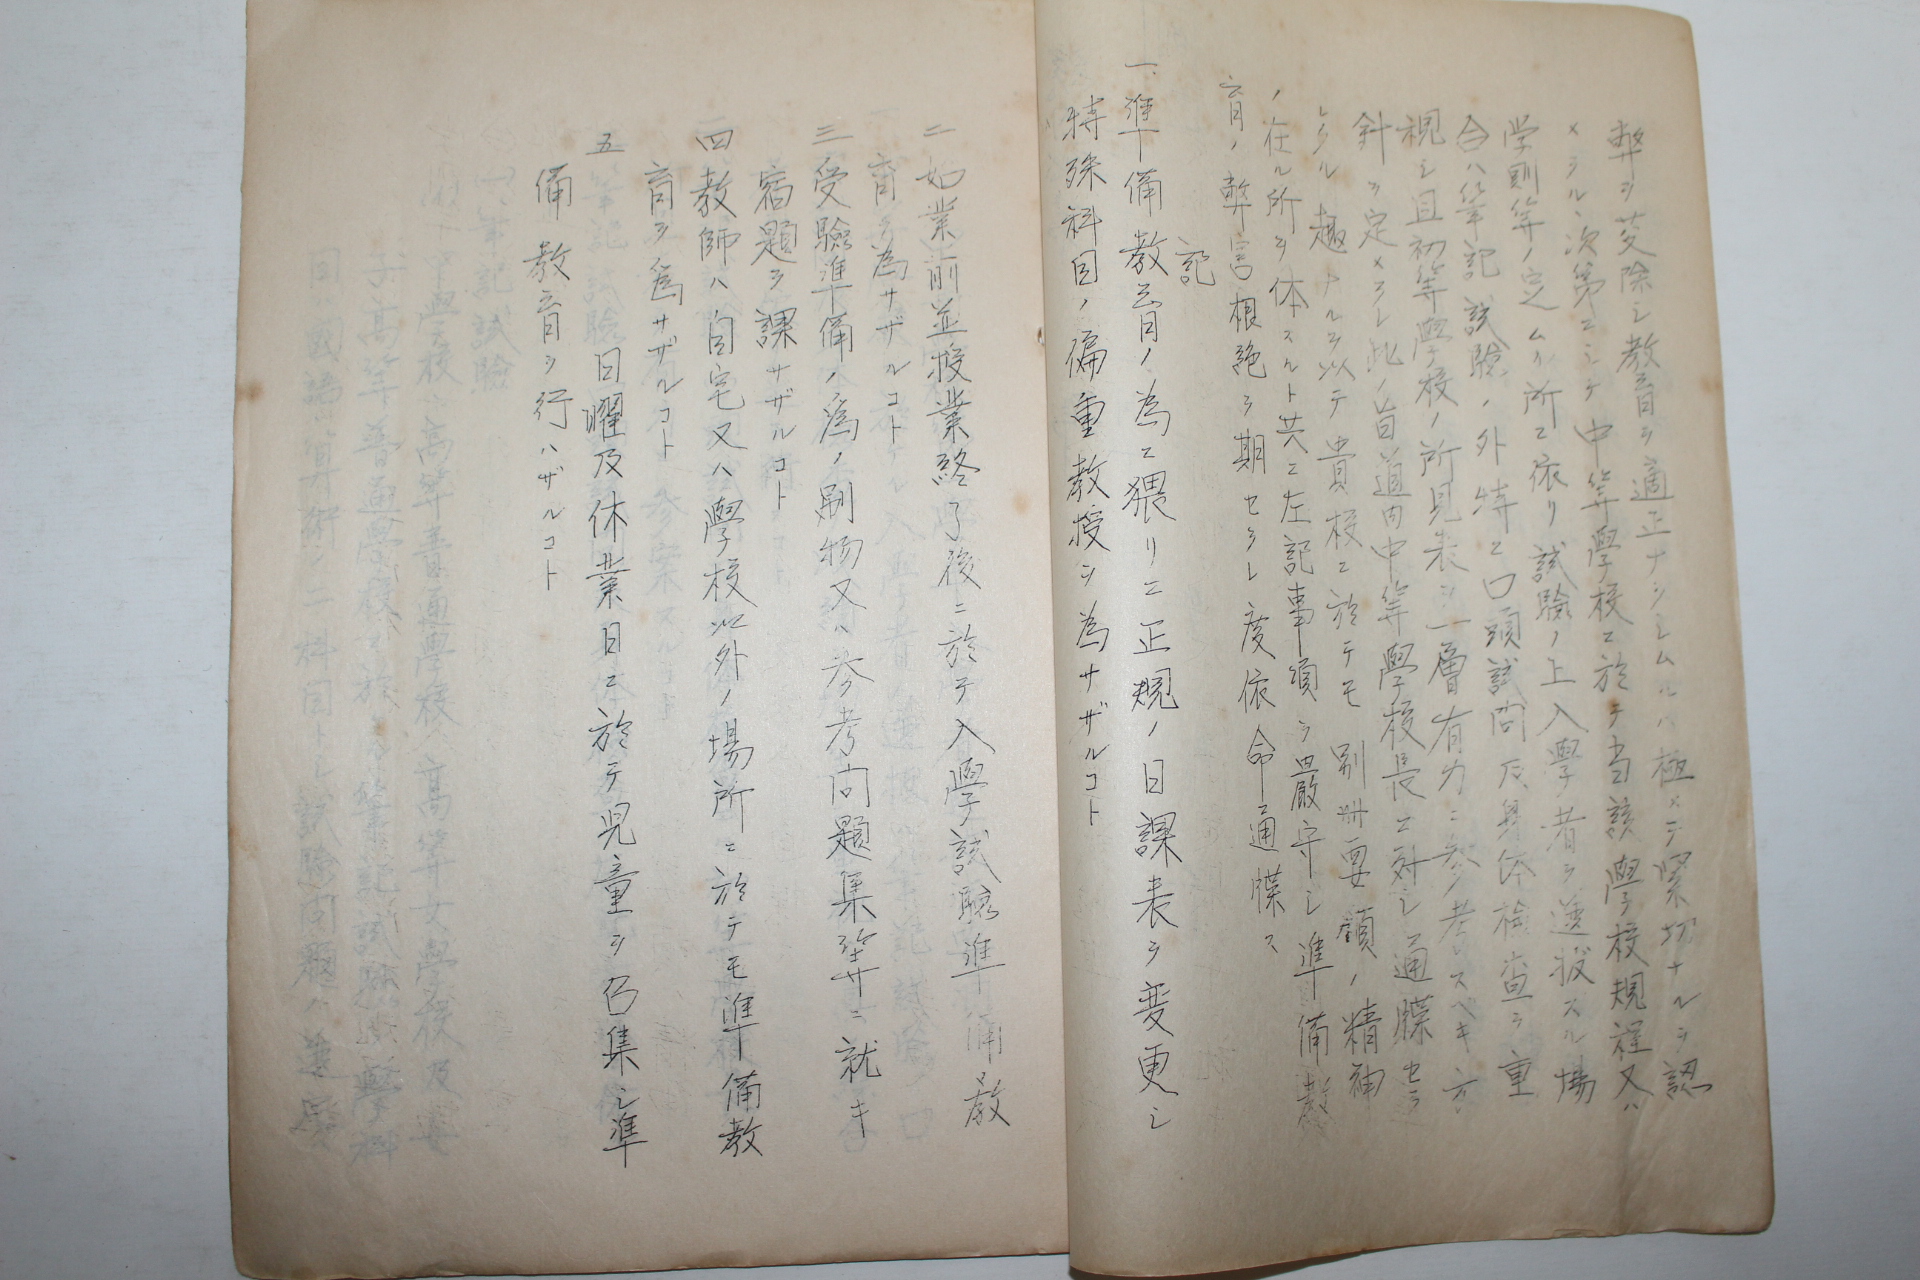 弊ヲ芟除シ教育ヲ適正ナラシムルハ極メテ緊切ナルヲ認
メラルヽ次第ニシテ中等學校ニ於テ当該學校規程又ハ
学則等ノ定ムル所ニ依リ試驗ノ上入學者ヲ選抜スル場
合ハ筆記試驗ノ外特ニ口頭試問及身体檢査ヲ重
視シ且初等學校ノ所見表ヲ一層有力ニ参考スベキ方
針ヲ定メラレ此ノ旨道内中等學校長ニ対シ通牒セラ
レタル趣ナルヲ以テ貴校ニ於テモ別冊要領ノ精神
ノ在ル所ヲ体スルト共ニ左記事項ヲ嚴守シ準備教
育ノ弊害根絶ヲ期セラレ度依命通牒ス
記
一、準備教育ノ為ニ猥リニ正規ノ日課表ヲ変更シ
特殊科目ノ偏重教授ヲ為サザルコト
二 始業前並授業終了後ニ於テ入學試驗準備教
育ヲ為サザルコト
三 受驗準備ノ為ノ刷物又ハ参考問題集等ニ就キ
宿題ヲ課サザルコト
四 教師ハ自宅又ハ學校以外ノ場所ニ於テモ準備教
育ヲ為サザルコト
五 日曜及休業日ニ於テ児童ヲ召集シ準
備教育ヲ行ハザルコト